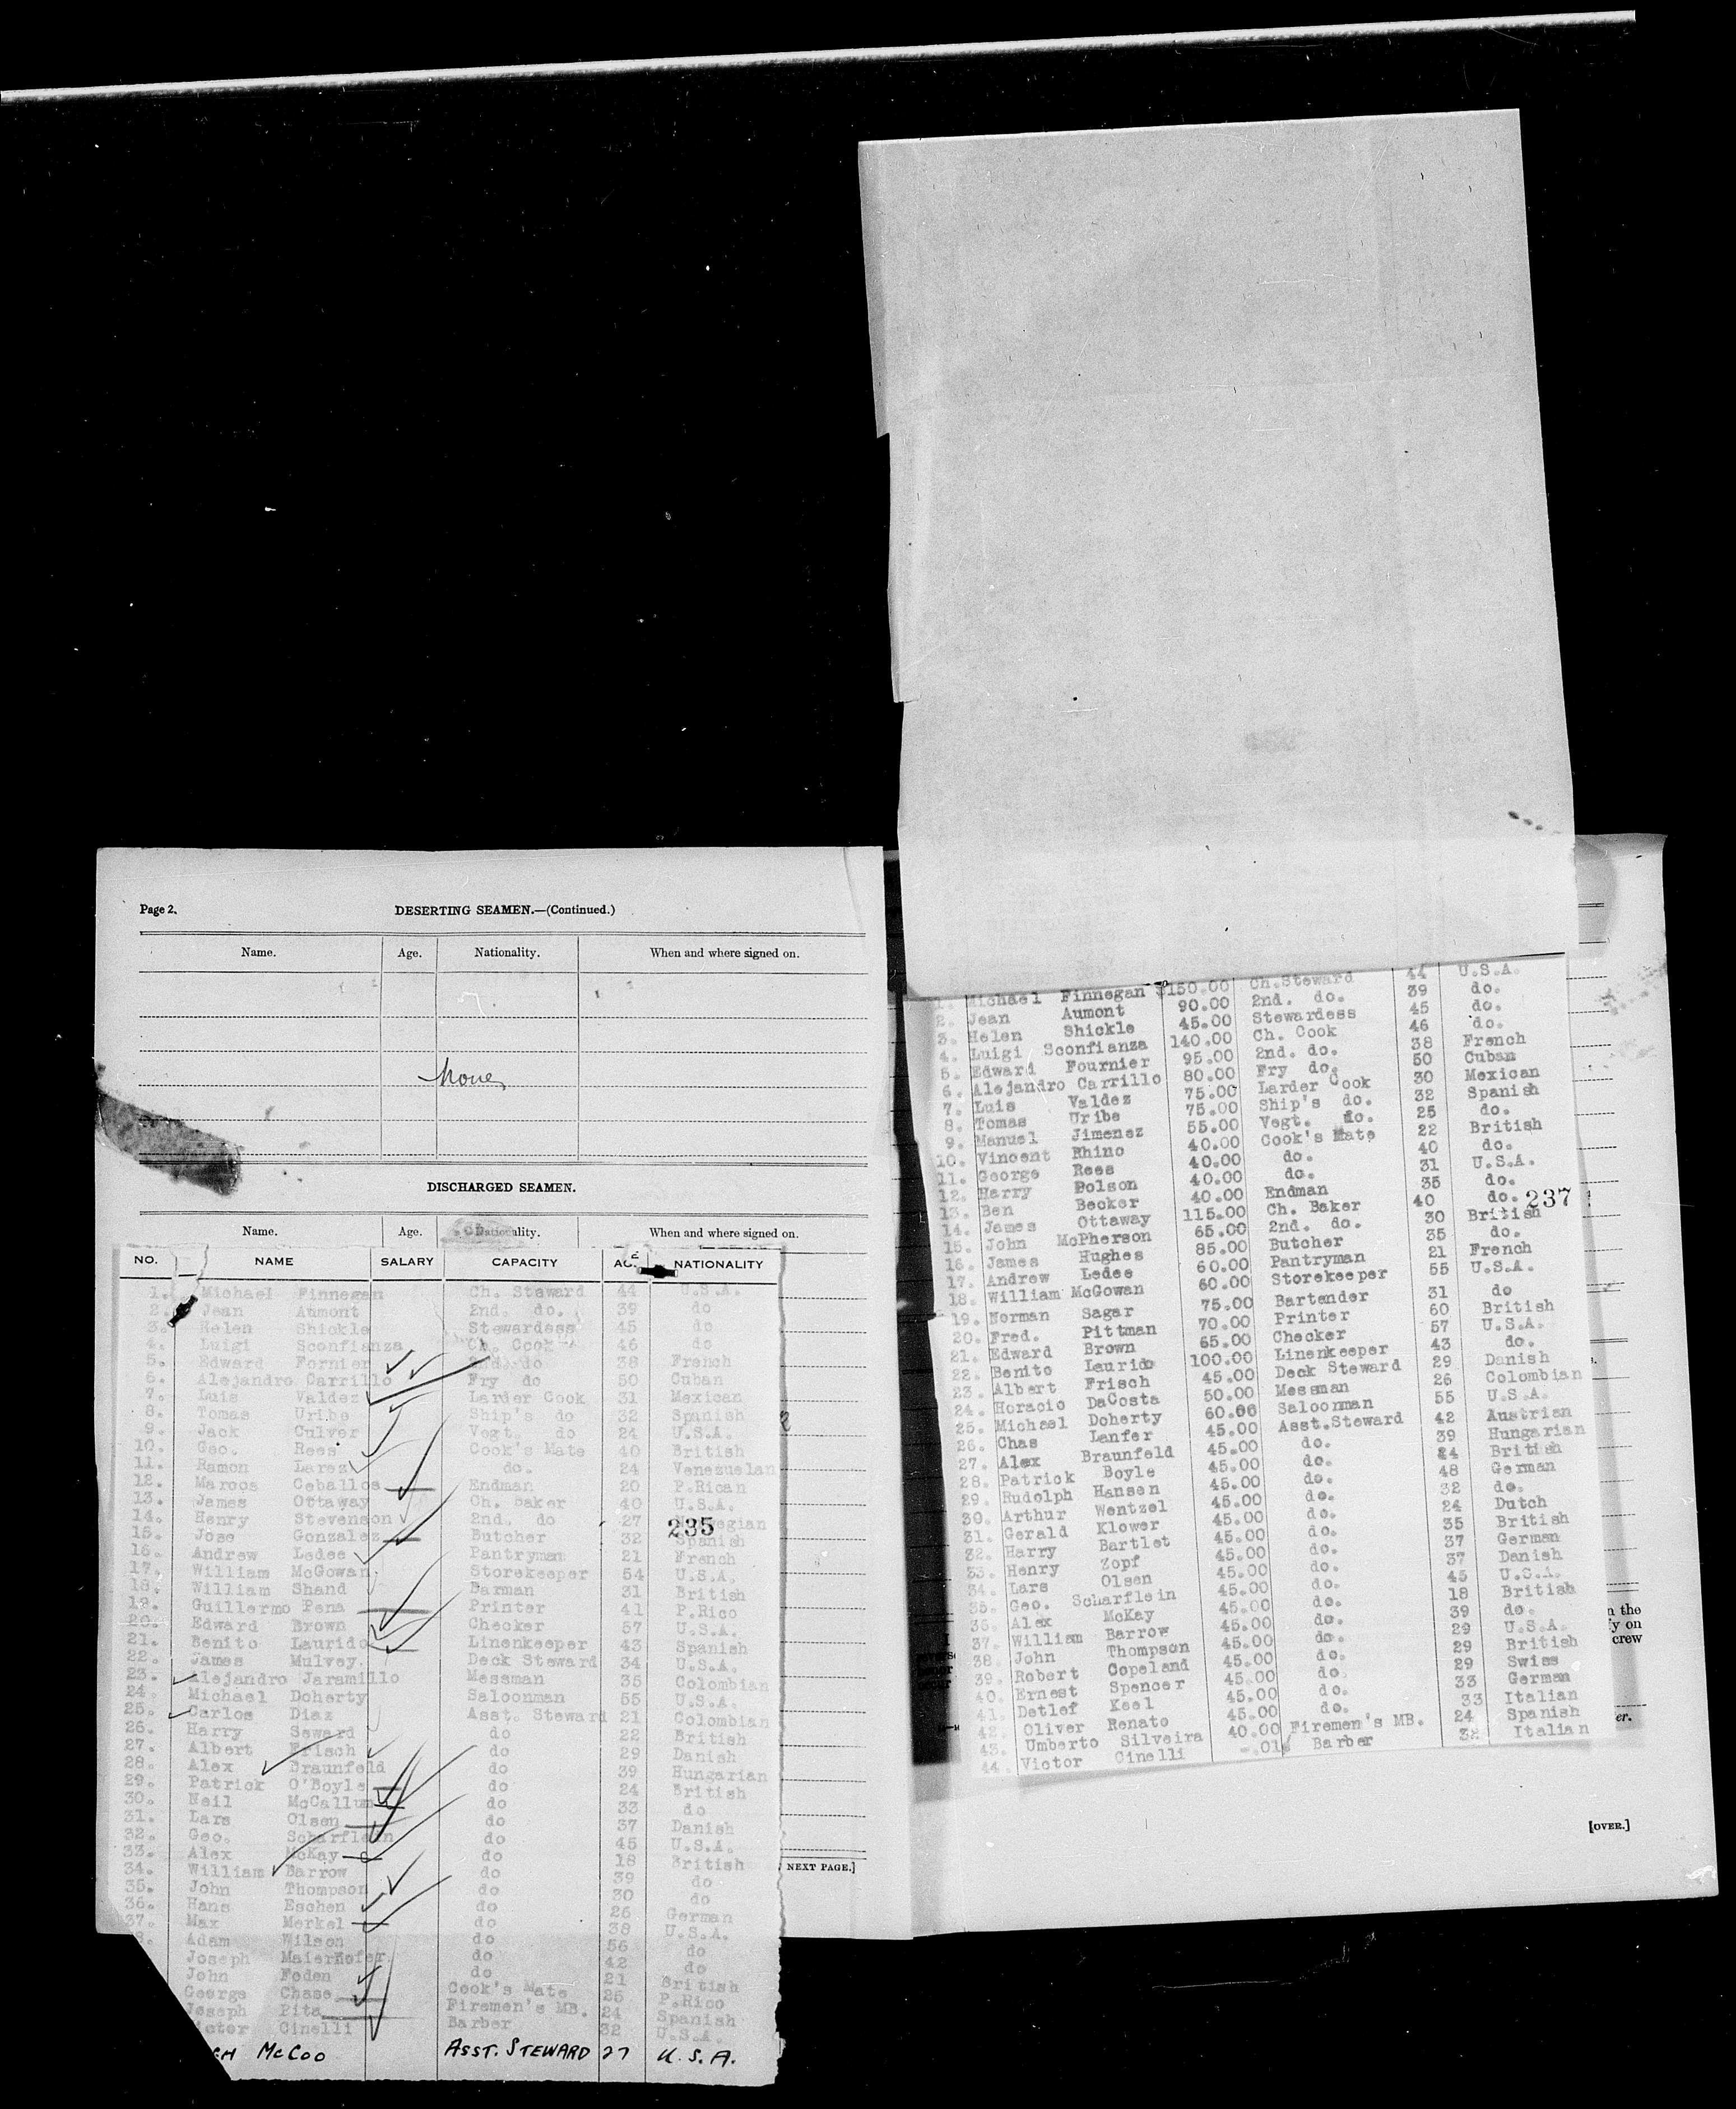 Page 2.
DESERTING SEAMEN.—(Continued.)
Name. Age. Nationality. When and where signed on.
None
DISCHARGED SEAMEN.
Name. Age. Nationality. When and where signed on.
NO. NAME SALARY CAPACITY NATIONALITY
1. Michael Finnegan Ch. Steward 44 U.S.A.
2. Jean Aumont 2nd. do. 39 do
3. Helen Shickle Stewardess 45 do
4. Luigi Sconfianza Ch. Cook 46 do
5. Edward Fornier 2nd. do 38 French
6. Alejandro Carrillo Fry do 50 Cuban
7. Luis Valdez Larder Cook 31 Mexican
8. Tomas Uribe Ship's do 32 Spanish
9. Jack Culver Vegt. do 24 U.S.A.
10. Geo. Rees Cook's Mate 40 British
11. Ramon Larez do. 24 Venezuelan
12. Marcos Ceballos Endman 20 P.Rican
13. James Ottaway Ch. Baker 40 U.S.A.
14. Henry Stevenson 2nd. do 27 egian
235
15. Jose Gonzalez Butcher 32 Spanish
16. Andrew Ledee Pantryman 21 French
17. William McGowan Storekeeper 54 U.S.A.
18. William Shand Barman 31 British
19. Guillermo Pena Printer 41 P.Rico
20. Edward Brown Checker 57 U.S.A.
21. Benito Laurido Linenkeeper 43 Spanish
22. James Mulvey. Deck Steward 34 U.S.A.
23. Alejandro Jaramillo Messman 35 Colombian
24. Michael Doherty Saloonman 55 U.S.A.
25. Carlos Diaz Asst. Steward 21 Colombian
26. Harry Seward do 22 British
27. Albert Frisch do 29 Danish
28. Alex Braunfeld do 39 Hungarian
29. Patrick O'Boyle do 24 British
30. Neil McCallum do 33 do
31. Lars Olsen do 37 Danish
32. Geo. Scharflein do 45 U.S.A.
33. Alex McKay do 18 British
34. William Barrow do 39 do
35. John Thompson do 30 do
36. Hans Eschen do 26 German
37. Max Merkel do 38 U.S.A.
8. Adam Wilson do 56 do
Joseph Maierhofer. do 42 do
John Foden do 21 British
George Chase Cook's Mate 25 P.Rico
Joseph Pita Firemen's MB. 24 Spanish
ictor Cinelli Barber 32 U.S.A.
GH McCOO ASST. STEWARD 27 U.S.A.
NEXT PAGE.]
1. Michael Finnegan $150.00 Ch.Steward 44 U.S.A.
2. Jean Aumont 90.00 2nd. do. 39 do.
3. Helen Shickle 45.00 Stewardess 45 do.
4. Luigi Sconfianza 140.00 Ch. Cook 46 do.
5. Edward Fournier 95.00 2nd. do. 38 French
6. Alejandro Carrillo 80.00 Fry do. 50 Cuban
7. Luis Valdez 75.00 Larder Cook 30 Mexican
8. Tomas Uribe 75.00 Ship's do. 32 Spanish
9. Manuel Jimenez 55.00 Vegt. do. 25 do.
10. Vincent Rhino 40.00 Cook's Mate 22 British
11. George Rees 40.00 do. 40 do.
12. Harry Polson 40.00 do. 31 U.S.A.
13. Ben Becker 40.00 Endman 35 do.
14. James Ottaway 115.00 Ch. Baker 40 do.
237
15. John McPherson 65.00 2nd. do. 30 British
16. James Hughes 85.00 Butcher 35 do.
17. Andrew Ledee 60.00 Pantryman 21 French
18. William McGowan 60.00 Storekeeper 55 U.S.A.
19. Norman Sagar 75.00 Bartender 31 do
20. Fred. Pittman 70.00 Printer 60 British
21. Edward Brown 65.00 Checker 57 U.S.A.
22. Benito Laurido 100.00 Linenkeeper 43 do.
23. Albert Frisch 45.00 Deck Steward 29 Danish
24. Horacio DaCosta 50.00 Messman 26 Colombian
25. Michael Doherty 60.00 Saloonman 55 U.S.A.
26. Chas Lanfer 45.00 Asst.Steward 42 Austrian
27. Alex Braunfeld 45.00 do. 39 Hungarian
28. Patrick Boyle 45.00 do. 24 British
29. Rudolph Hansen 45.00 do. 48 German
30. Arthur Wentzel 45.00 do. 32 do.
31. Gerald Klower 45.00 do. 24 Dutch
32. Harry Bartlet 45.00 do. 35 British
33. Henry Zopf 45.00 do. 37 German
34. Lars Olsen 45.00 do. 37 Danish
35. Geo. Scharflein 45.00 do. 45 U.S.A.
36. Alex McKay 45.00 do. 18 British
37. William Barrow 45.00 do. 39 do.
38. John Thompson 45.00 do. 29 U.S.A.
39. Robert Copeland 45.00 do. 29 British
40. Ernest Spencer 45.00 do. 29 Swiss
41. Detlef Keel 45.00 do. 33 German
42. Oliver Renato 45.00 do. 33 Italian
43. Umberto Silveira 40.00 Firemen's MB. 24 Spanish
44. Victor Cinelli .01 Barber 32 Italian
n the
y on
crew
er.
[OVER.]